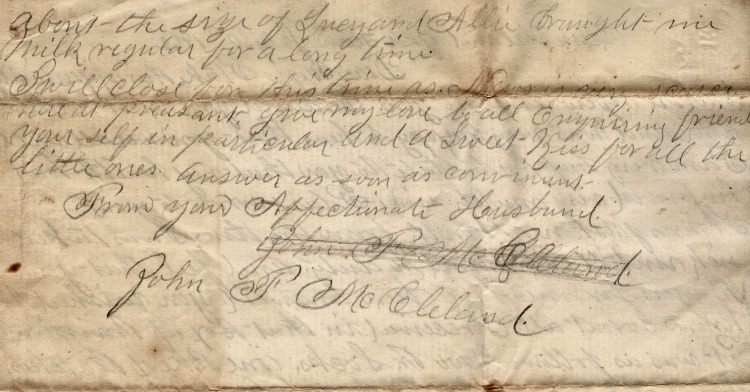 about the size of Lucy and Allie braught me
milk regular for a long time.
I will close for this time as News is very scarce
here at preasant. give my love to all Enquiring friend
your self in particular. and a Sweet Kiss for all the
little ones. answer as soon as convinient
From your Affectionate Husband.
John. P. McCleland.
John P McCleland.